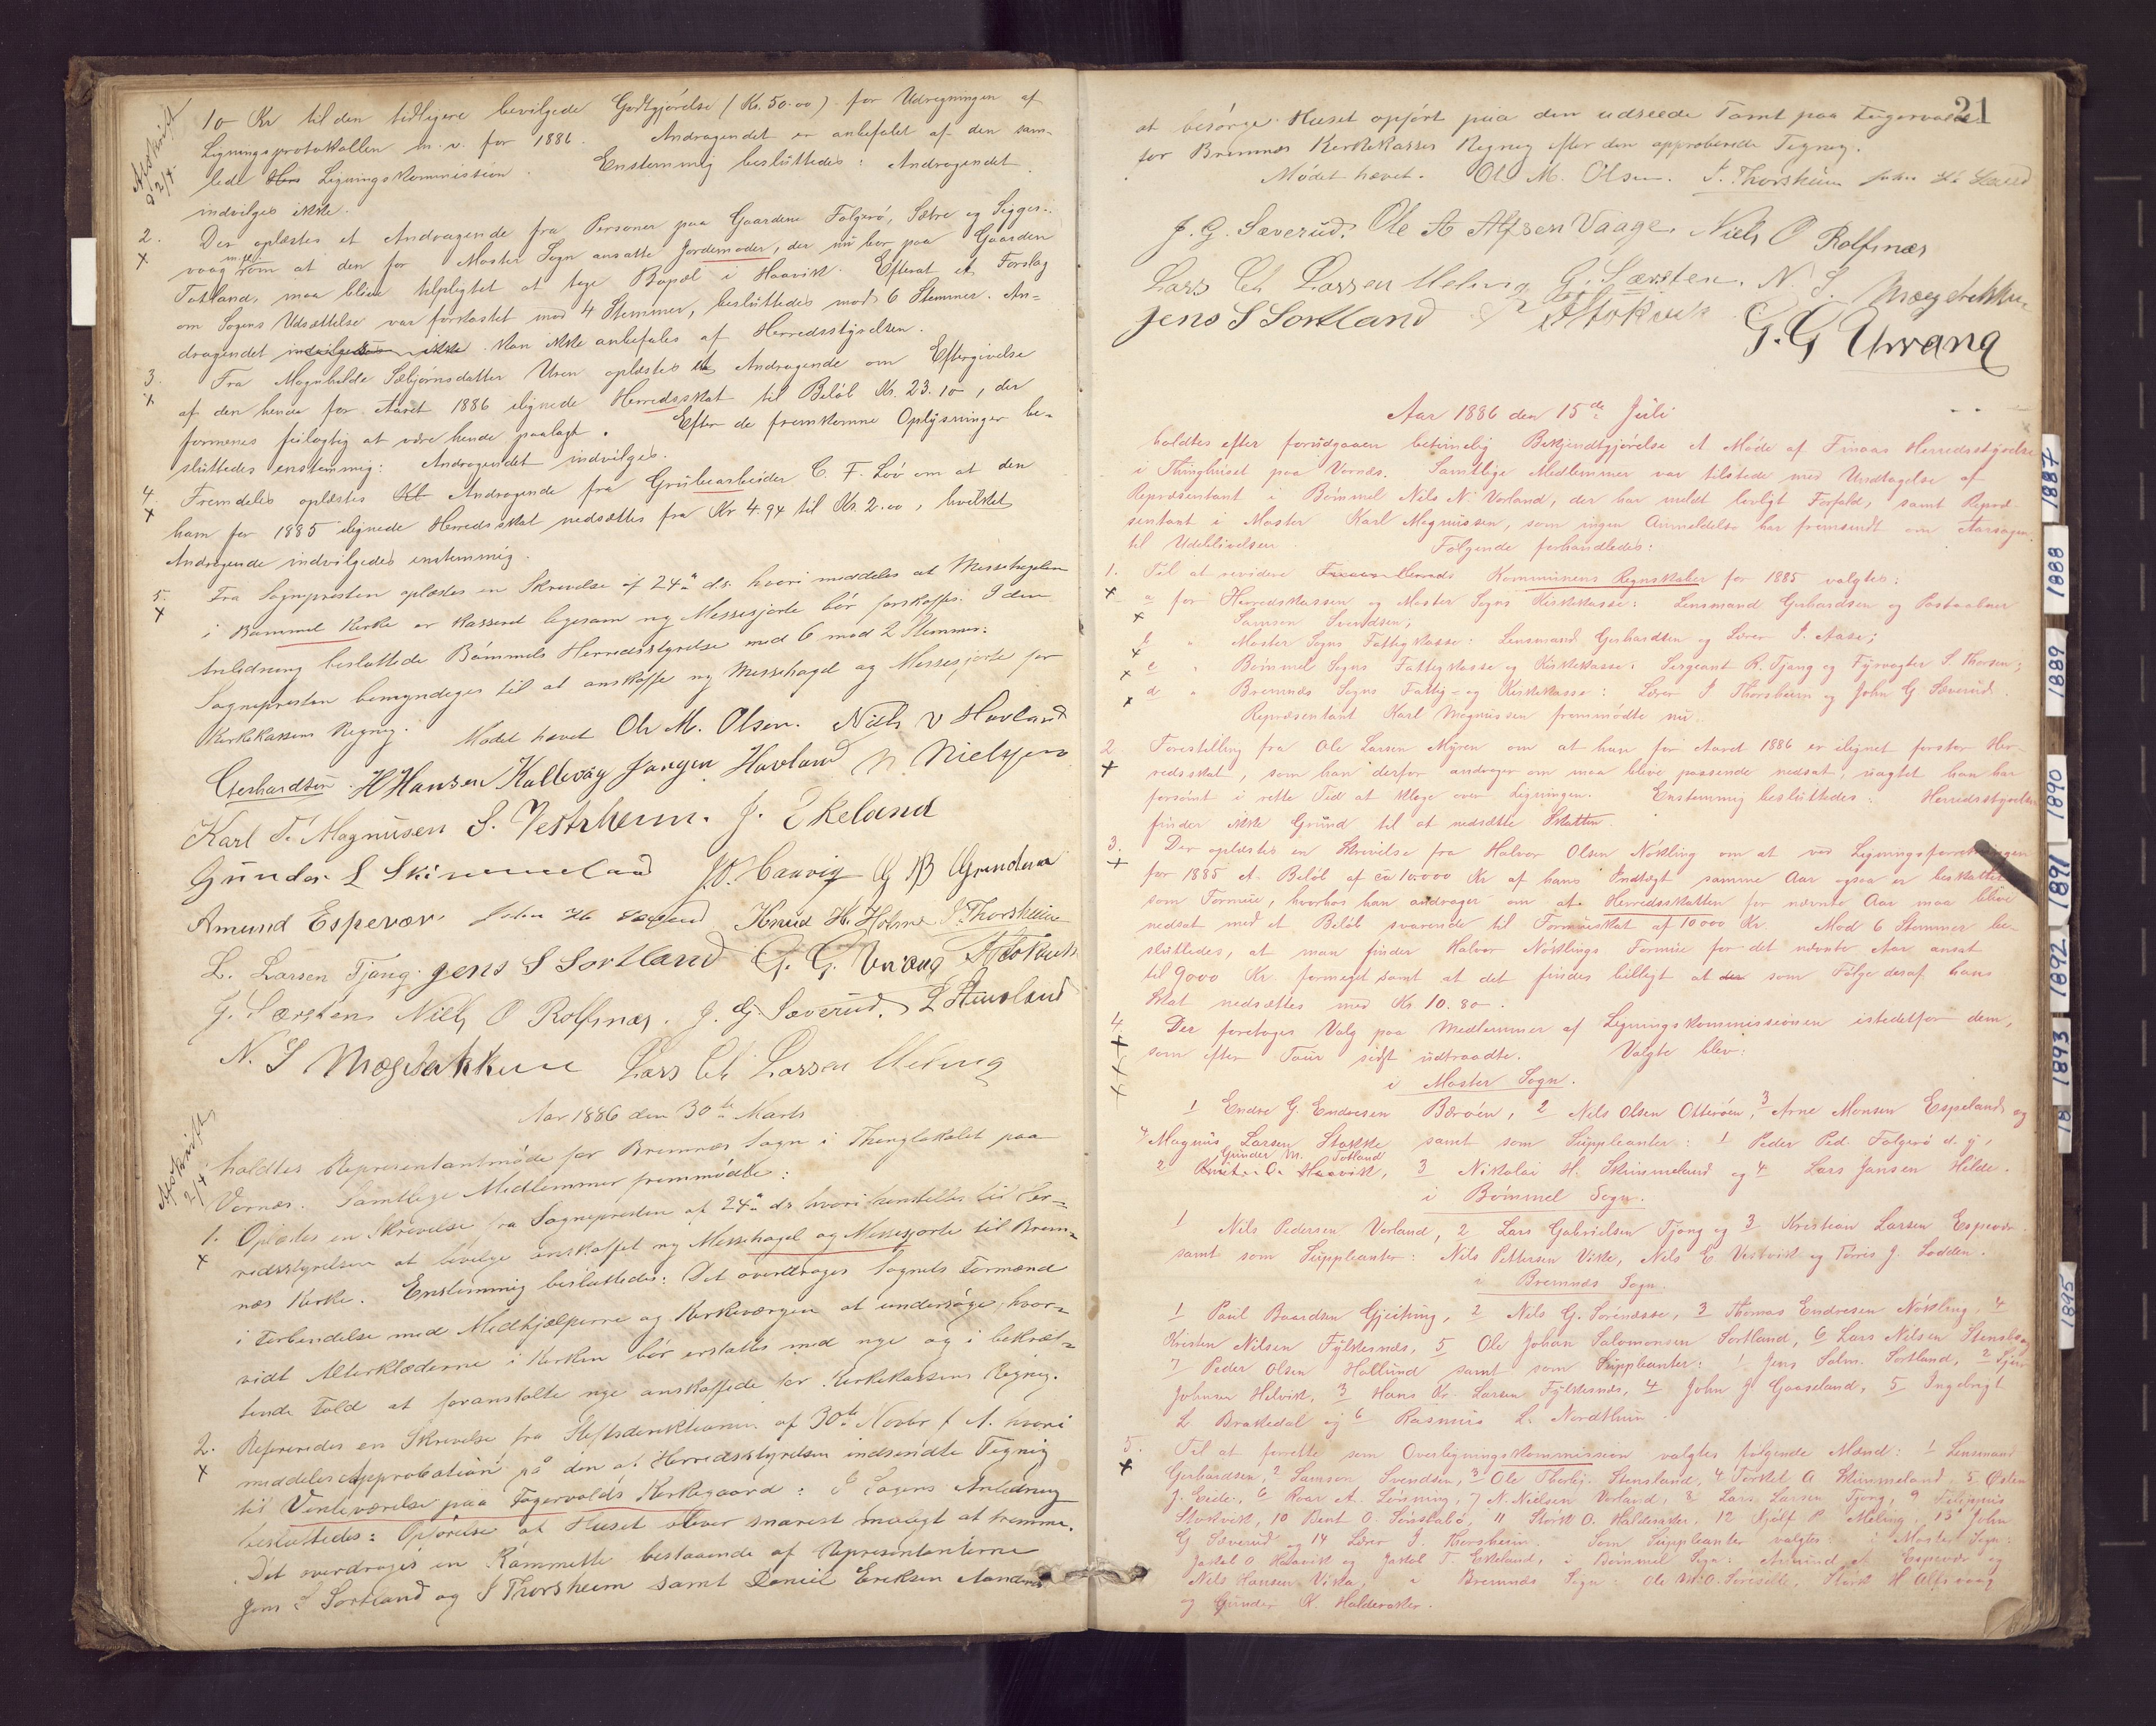 Afskrift
2/4
10 Kr til den tidligere bevilgede Godtgjørelse (Kr. 50.00) for Udregningen af
Ligningsprotokollen m. v. for 1886. Andragendet er anbefalet af den sam-
lede Ligningskommission. Enstemmig besluttedes: Andragendet
indvilges ikke.
2. Der oplæstes et Andragende fra Personer paa Gaardene Folgerø, Sætre og Sigger-
x vaag m. fl. om at den for Moster Sogn ansatte Jordemoder, der nu bor paa Gaarden
Totland, maa blive tilpligtet at tage Bopæl i Haavik. Efterat et Forslag
om Sagens Udsættelse var forkastet mod 4 Stemmer, besluttedes mod 6 Stemmer. An-
dragendet indvilgedes ikke kan ikke anbefales af Herredsstyrelsen.
3. Fra Magnhilde Sæbjørnsdatter Uren oplæstes et Andragende om Eftergivelse
x af den hende for Aaret 1886 ilignede Herredsskat til Beløb Kr. 23.10, der
formenes feilagtig at være hende paalagt. Efter de fremkomne Oplysninger be-
sluttedes enstemmig: Andragendet indvilges.
4. Fremdeles oplæstes et Andragende fra Grubearbeider C. F. Loö om at den
x ham for 1885 ilignede Herredsskat nedsættes fra Kr 4.94 til Kr. 2.00, hvilket
Andragende indvilgedes enstemmig.
5. Fra Sognepresten oplæstes en Skrivelse af 24de ds. hvori meddeles at Messehagelen
x i Bømmel Kirke er kasseret ligesom ny Messesjorte bör forskaffes. I den
Anledning besluttede Bömmels Herredsstyrelse med 6 mod 2 Stemmer:
Sognepresten bemyndiges til at anskaffe ny Messehagel og Messesjorte for
Kirkekassens Regning. Mödet hævet Ole M. Olsen. Niels N Havland
Gerhardsen H Hansen Kallevåg Jørgen Havland N. Nielsen
Karl T. Magnusen S. Vestrheim. J. Ekeland
Gunder L Skimmeland
Amund Espevær. Knud H. Holme J. Thorsheim
L. Larsen Tjong. Jens S Sortland G. G. Urvang A Stokvik
G. Særsten Niels O Rolfsnæs. J. G. Sæverud. L Stensland
N. S Mæhdækken Lars Ch Larsen Meling
Afskrift
2/4
Aar 1886 den 30te Marts
holdtes Representantmøde for Bremnes Sogn i Thinglokalet paa
Vornæs. Samtlige Medlemmer fremmødte:
1. Oplæstes en Skrivelse fra Sognepresten af 24de ds. hvori henstilles til Her-
x redsstyrelsen at bevilge anskaffet ny Messehagel og Messesjorte til Brem-
næs Kirke. Enstemmig besluttedes: Det overdrages Sognets Formænd
i Forbindelse med Medhjælperne og Kirkeværgen at undersøge, hvor-
vidt Alterklæderne i Kirken bør erstattes med nye og i bekræf-
tende Fald at foranstalte nye anskaffede for Kirkekassens Regning.
2. Refereredes en Skrivelse fra Stiftsdirektionen af 30te Novbr f. A. hvori
x meddeles Approbation på den af Herredsstyrelsen indsendte Tegning
til Venteværelse paa Fagervolds Kirkegaard: I Sagens Anledning
besluttedes: Opførelse af Huset bliver snarest muligt at fremme.
Det overdroges en Kommitte bestaaende af Representanterne
Jens S Sortland og J Thorsheim samt Daniel Eriksen Aandnes
21
at besørge Huset opført paa den udseede Tomt paa Fagervold
for Bremnæs Kirkekasses Regning efter den approberede Tegning.
Mødet hævet. Ole M. Olsen. J. Thorsheim
J. G. Sæverud. Ole A Alfsen Vaage. Niels O Rolfsnæs
Lars Ch Larsen Meling G. Særsten. N. S. Mæhdækken
Jens S Sortland A Stokvik G. G Urvang
Aar 1886 den 15de Juli
holdtes efter forudgaaen betimelig Bekjendtgjørelse et Møde af Finaas Herredsstyrelse
i Thinghuset paa Vornæs. Samtlige Medlemmer var tilstede med Undtagelse af
Repræsentant i Bømmel Nils N. Vorland, der har meldt lovligt Forfald, samt Repræ-
sentant i Moster Karl Magnussen, som ingen Anmeldelse har fremsendt om Aarsagen
til Udeblivelsen. Følgende forhandledes:
1. Til at revidere Kommunens Regnskaber for 1885 valgtes:
x a for Herredskassen og Moster Sogns Kirkekasse: Lensmand Gerhardsen og Postaabner
x Samson Svendsen;
b " Moster Sogns Fattigkasse: Lensmand Gerhardsen og Lærer P. Aase;
x c " Bømmel Sogns Fattigkasse og Kirkekasse: Sergeant R. Tjong og Fyrvogter S. Thorsen;
x d " Bremnæs Sogns Fattig- og Kirkekasse: Lærer J Thorsheim og John G Sæverud.
Repræsentant Karl Magnussen fremmødte nu.
2. Forestilling fra Ole Larsen Myren om at han for Aaret 1886 er ilignet forstor Her-
x redsskat, som han derfor andrager om maa blive passende nedsat, uagtet han har
forsømt i rette Tid at klage over Ligningen. Enstemmig besluttedes: Herredsstyrelsen
finder ikke Grund til at nedsætte Skatten.
3. Der oplæstes en Skrivelse fra Halvor Olsen Nøkling om at ved Ligningsforretningen
x for 1885 et Beløb af ca 10.000 Kr af hans Indtægt samme Aar ogsaa er beskattet
som Formue, hvorhos han andrager om at Herredsskatten for nævnte Aar maa blive
nedsat med et Beløb svarende til Formueskat af 10 000 Kr. Mod 6 Stemmer be-
sluttedes, at man finder Halvor Nøklings Formue for det nævnte Aar ansat
til 9000 Kr. formeget samt at det findes billigt at som Følge deraf hans
Skat nedsættes med Kr. 10.80.
4. Der foretoges Valg paa Medlemmer af Ligningskommissionen istedetfor dem,
x som efter Tour sidst udtraadte. Valgte blev:
i Moster Sogn.
1 Endre G. Endresen Bærøen, 2 Nils Olsen Otterøen, 3 Arne Monsen Espeland og
4 Magnus Larsen Stokke samt som Suppleanter: 1 Peder Ped. Folgerø d. y,
Gunder M. Totland
2 Haavik, 3 Nikolai H. Skimmeland og 4 Lars Jansen Hilde.
i Bømmel Sogn.
1 Nils Pedersen Vorland, 2 Lars Gabrielsen Tjong og 3 Kristian Larsen Espevær
samt som Suppleanter: Nils Pettersen Vike, Nils E. Vestvik og Torris J. Lodden.
i Bremnæs Sogn.
1 Paul Baardsen Gjeitung, 2 Nils G. Sørenæsse, 3 Thomas Endresen Nøkling, 4
Kristen Nilsen Fylkesnæs, 5 Ole Johan Salomonsen Sortland, 6 Lars Nilsen Stensbø og
7 Peder Olsen Hollund samt som Suppleanter: 1 Jens Salm. Sortland, 2
Johnsen Helvik, 3 Hans Kr. Larsen Fylkesnæs, 4 John J Gaaseland, 5 Ingebrigt
L. Brakedal og 6 Rasmus L. Nordthun.
5. Til at forrette som Overligningskommission valgtes følgende Mænd: 1 Lensmand
x Gerhardsen, 2 Samson Svendsen, 3 Ole Thorbj. Stensland, 4 Torkel A Skimmeland 5 Østen
J. Eide, 6 Roar A. Løvning, 7 N. Nielsen Vorland, 8 Lars Larsen Tjong, 9
Stokvik, 10 Bent O. Sønstabø, 11 Størk O. Halderaker, 12 P. Meling, 13 John
G Sæverud og 14 Lærer J. Thorsheim. Som Suppleanter valgtes: i Moster Sogn:
Jakob O Haavik og Jakob T. Ekeland, i Bømmel Sogn: Amund Espevær og
Nils Hansen Vika, i Bremnæs Sogn: Størk H Alfsvaag
og Gunder K. Halderaker.
1887
1888
1889
1890
1891
1892
1893
18
1895